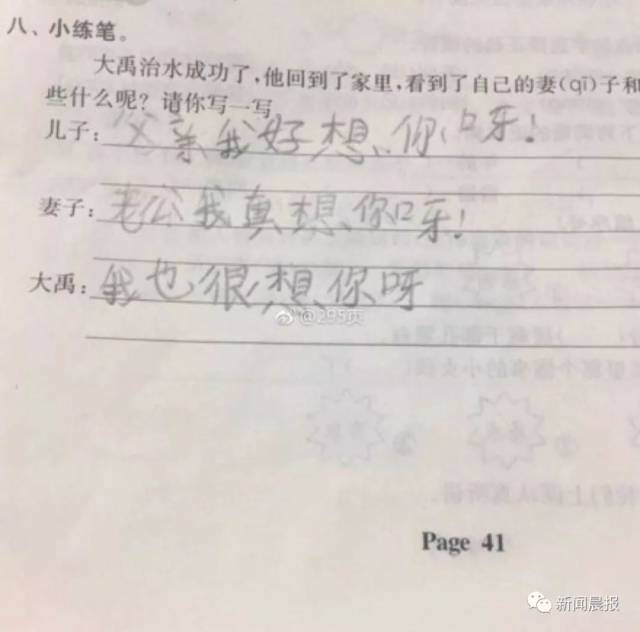 八、小练笔。
大禹治水成功了，他回到了家里，看到了自己的妻(qī)子和
些什么呢？请你写一写
儿子：父亲我好想你呀！
妻子：老公我真想你呀！
大禹：我也很想你呀
@295页
Page 41
新闻晨报